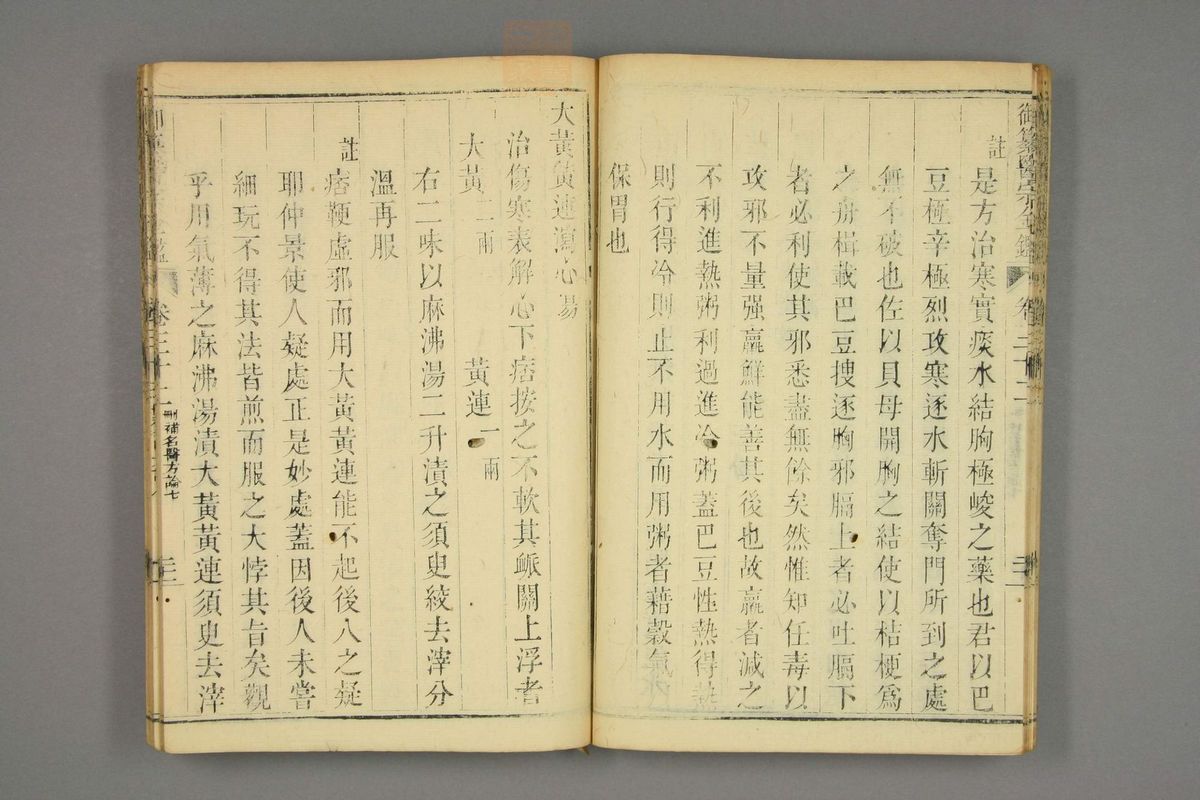 御纂醫宗金鑑 卷三十二
註
是方治寒實痰水結胸極峻之藥也君以巴
豆極辛極烈攻寒逐水斬關奪門所到之處
無不破也佐以貝母開胸之結使以桔梗爲
之舟楫載巴豆搜逐胸邪膈上者必吐膈下
者必利使其邪悉盡無餘矣然惟知任毒以
攻邪不量强羸鮮能善其後也故羸者減之
不利進熱粥利過進冷粥蓋巴豆性熱得熱
則行得冷則止不用水而用粥者藉穀氣
保胃也
大黃黃連瀉心湯
治傷寒表解心下痞按之不軟其脈關上浮者
大黃二兩 黃連一兩
右二味以麻沸湯二升漬之須臾絞去滓分
溫再服
註
痞鞕虛邪而用大黃黃連能不起後人之疑
耶仲景使人疑處正是妙處蓋因後人未嘗
細玩不得其法皆煎而服之大悖其旨矣觀
乎用氣薄之麻沸湯漬大黃黃連須臾去滓
卷三十二 刪補名醫方論七